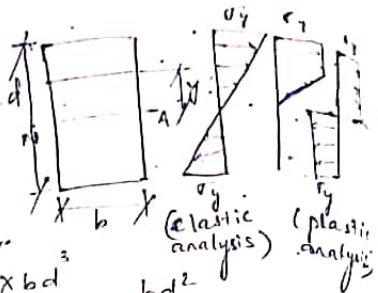 σy σy σy
d
y
A
b
σy σy
(elastic analysis)
(plastic analysis)
x bd³
bd²